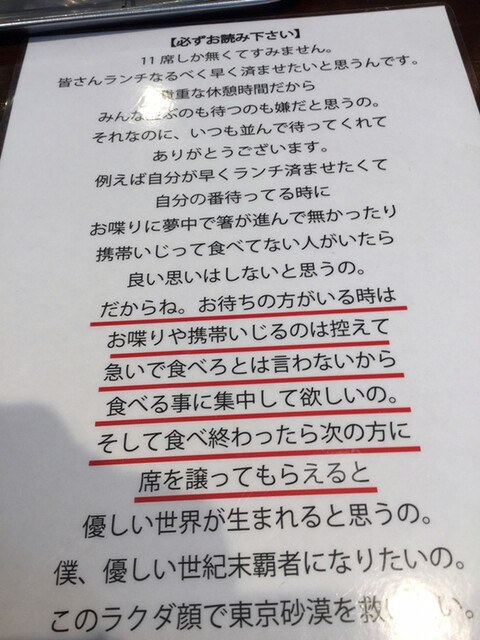 【必ずお読み下さい】
11席しか無くてすみません。
皆さんランチなるべく早く済ませたいと思うんです。
重な休憩時間だから
みんな ぶのも待つのも嫌だと思うの。
それなのに、いつも並んで待ってくれて
ありがとうございます。
例えば自分が早くランチ済ませたくて
自分の番待ってる時に
お喋りに夢中で箸が進んで無かったり
携帯いじって食べてない人がいたら
良い思いはしないと思うの。
だからね。お待ちの方がいる時は
お喋りや携帯いじるのは控えて
急いで食べろとは言わないから
食べる事に集中して欲しいの。
そして食べ終わったら次の方に
席を譲ってもらえると
優しい世界が生まれると思うの。
僕、優しい世紀末覇者になりたいの。
このラクダ顔で東京砂漠を救い い。